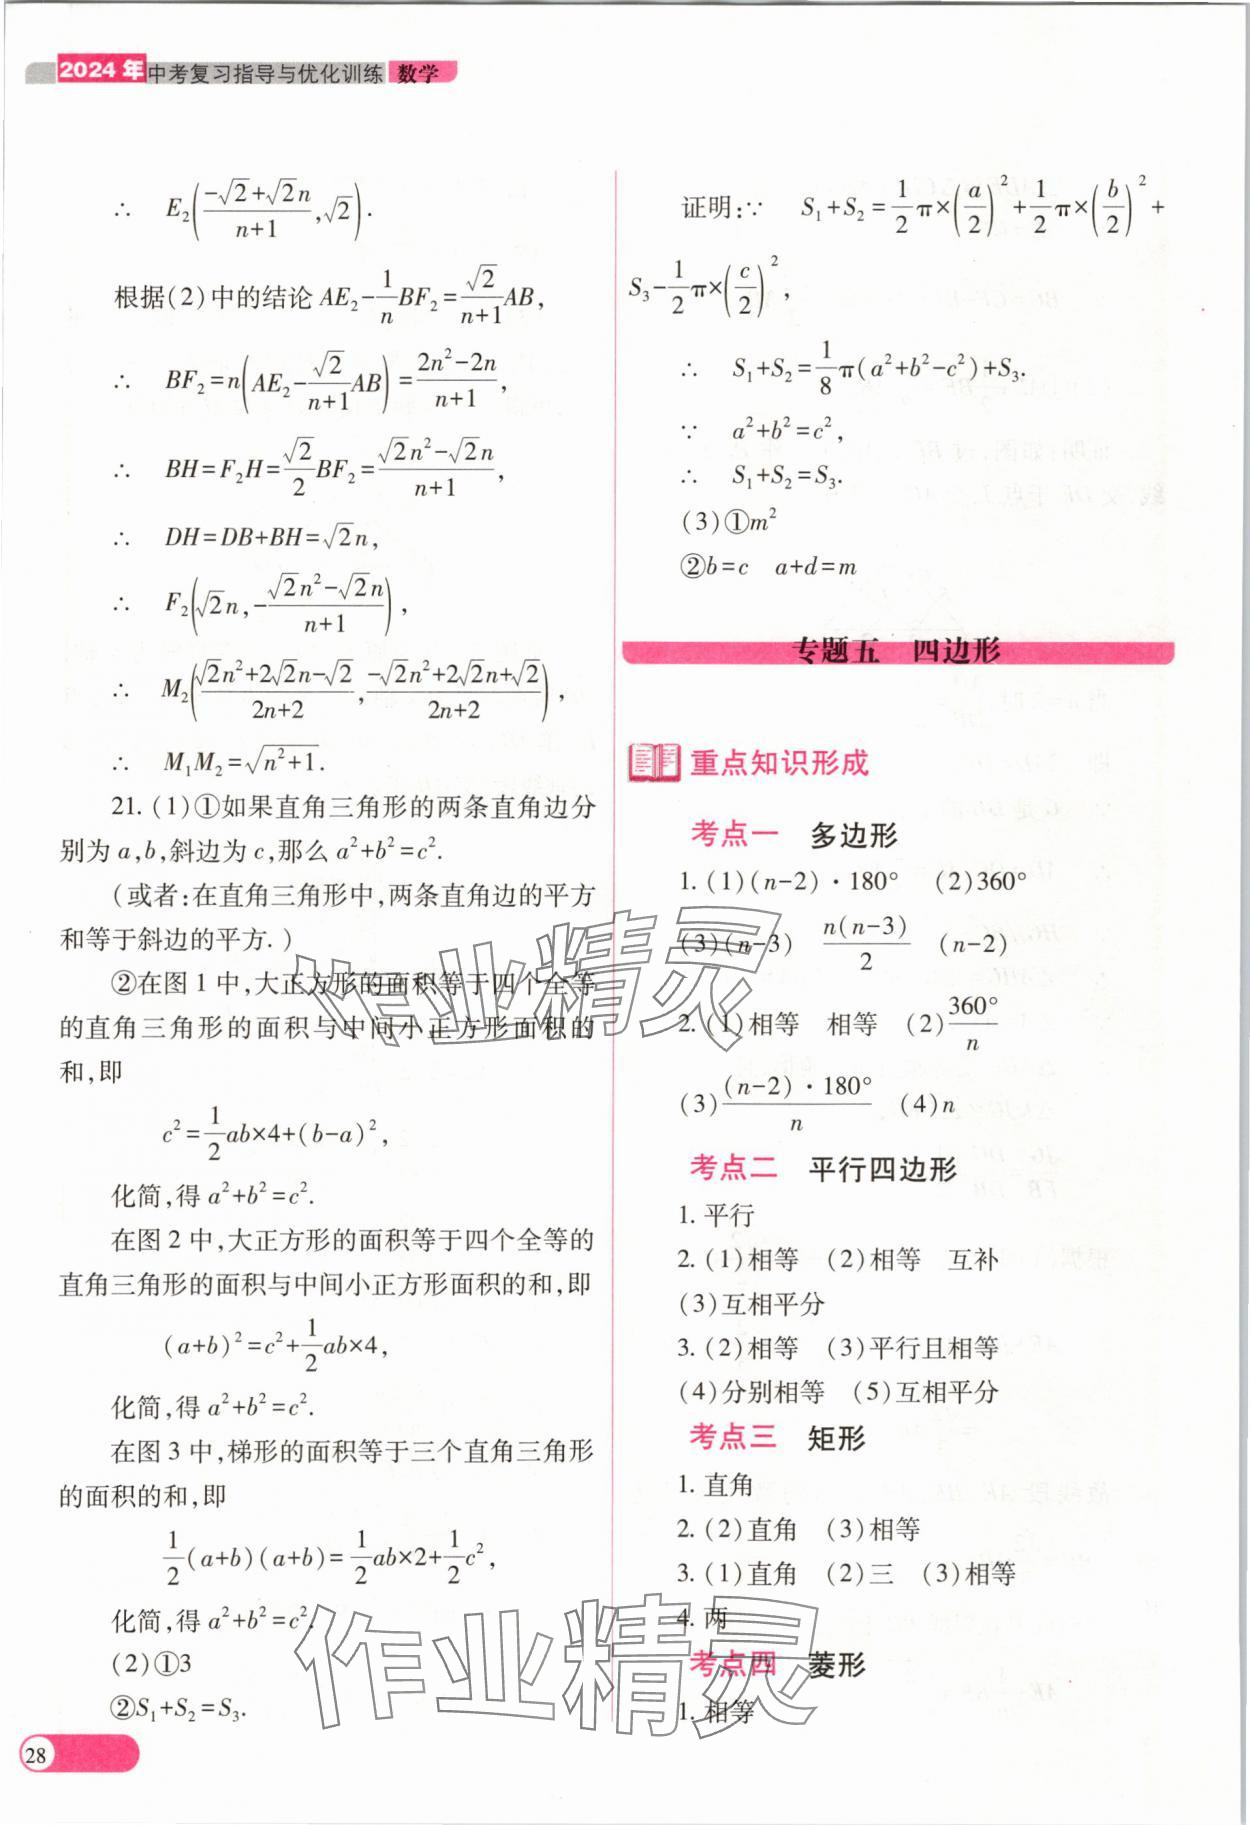 2024年中考复习指导与优化训练 数学
∴ E₂((-√2+√2n)/(n+1),√2).
根据(2)中的结论 AE₂-(1/n)BF₂=(√2/(n+1))AB,
∴ BF₂=n(AE₂-(√2/(n+1))AB)=(2n²-2n)/(n+1),
∴ BH=F₂H=(√2/2)BF₂=(√2n²-√2n)/(n+1),
∴ DH=DB+BH=√2n,
∴ F₂(√2n,-(√2n²-√2n)/(n+1)),
∴ M₂((√2n²+2√2n-√2)/(2n+2),(-√2n²+2√2n+√2)/(2n+2)),
∴ M₁M₂=√(n²+1).
21. (1)①如果直角三角形的两条直角边分
别为 a,b,斜边为 c,那么 a²+b²=c².
(或者:在直角三角形中,两条直角边的平方
和等于斜边的平方.)
②在图 1 中,大正方形的面积等于四个全等
的直角三角形的面积与中间小正方形面积的
和,即
c²=(1/2)ab×4+(b-a)²,
化简,得 a²+b²=c².
在图 2 中,大正方形的面积等于四个全等的
直角三角形的面积与中间小正方形面积的和,即
(a+b)²=c²+(1/2)ab×4,
化简,得 a²+b²=c².
在图 3 中,梯形的面积等于三个直角三角形
的面积的和,即
(1/2)(a+b)(a+b)=(1/2)ab×2+(1/2)c²,
化简,得 a²+b²=c².
(2)①3
②S₁+S₂=S₃.
证明:∵ S₁+S₂=(1/2)π×(a/2)²+(1/2)π×(b/2)²+
S₃-(1/2)π×(c/2)²,
∴ S₁+S₂=(1/8)π(a²+b²-c²)+S₃.
∵ a²+b²=c²,
∴ S₁+S₂=S₃.
(3)①m²
②b=c a+d=m
专题五 四边形
重点知识形成
考点一 多边形
1. (1)(n-2)·180° (2)360°
(3)(n-3) n(n-3)/2 (n-2)
2. (1)相等 相等 (2)360°/n
(3)(n-2)·180°/n (4)n
考点二 平行四边形
1. 平行
2. (1)相等 (2)相等 互补
(3)互相平分
3. (2)相等 (3)平行且相等
(4)分别相等 (5)互相平分
考点三 矩形
1. 直角
2. (2)直角 (3)相等
3. (1)直角 (2)三 (3)相等
4. 两
考点四 菱形
1. 相等
作业精灵
作业精灵
28